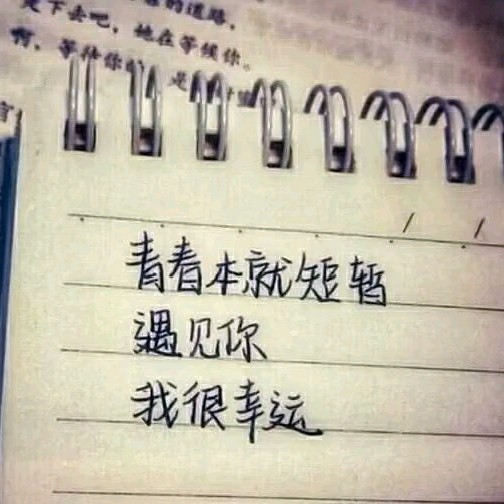 的道路,
走下去吧,她在等候你。
啊,等待你的是
青春本就短暂
遇见你
我很幸运